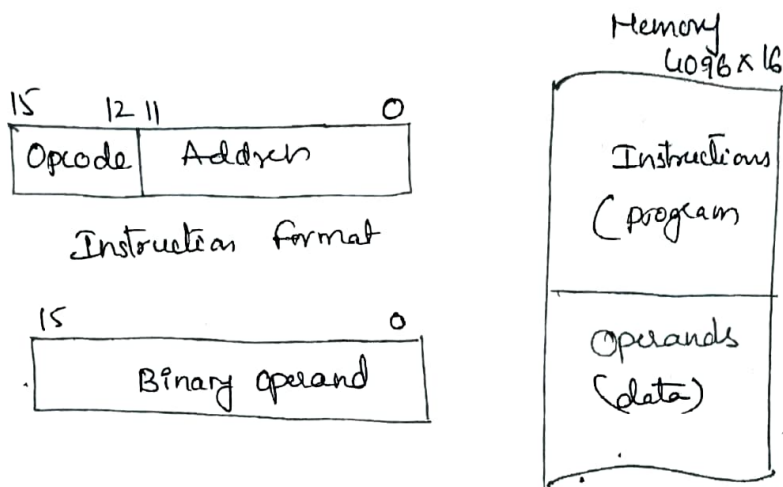 15 12 11 0
Opcode Address
Instruction format
15 0
Binary operand
Memory
4096 x 16
Instructions
(program
Operands
(data)